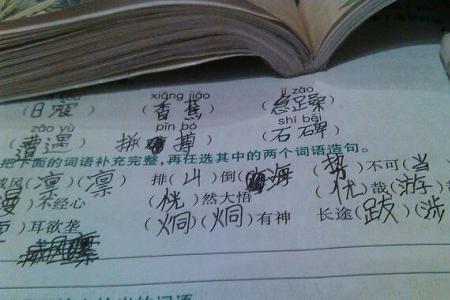 xiāng jiāo jí zào
(日寇) (香蕉) (急躁)
zāo yù pīn bó shí bēi
(遭遇) 拼搏 (石碑)
把下面的词语补充完整，再任选其中的两个词语造句。
威风(凛)(凛) 排(山)倒(海) (势)不可(当
(漫)不经心 (恍)然大悟 (优)哉(游)哉
)耳欲聋 (炯)(炯)有神 长途(跋)(涉
威风凛